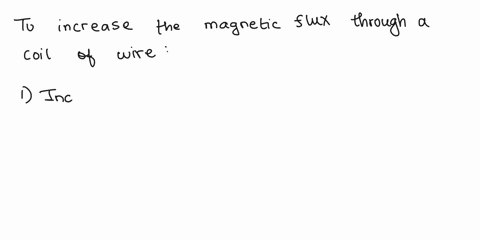 To increase the magnetic flux through a
coil of wire :
1) Inc